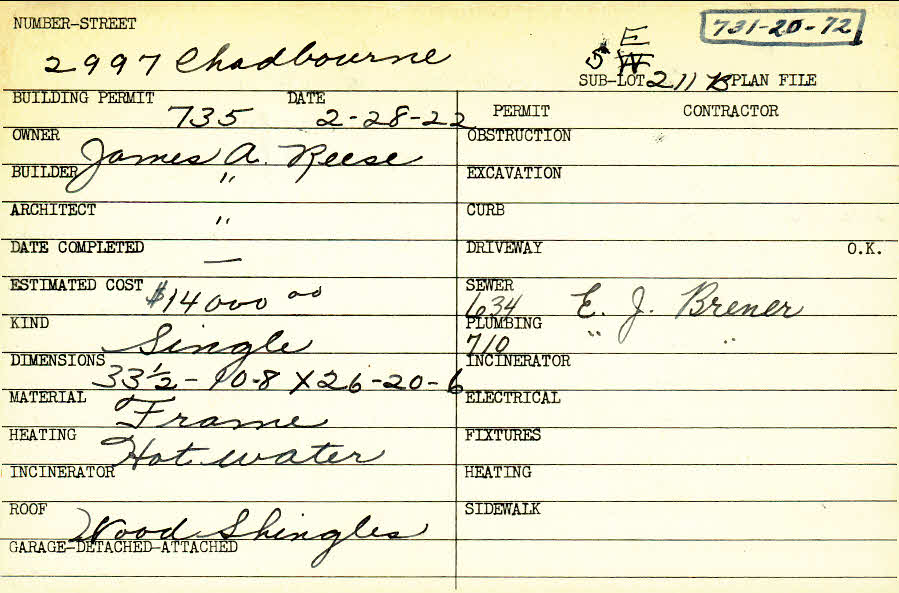 NUMBER-STREET
731-20-72
2997 Chadbourne
E
5 W
SUB-LOT 211 B PLAN FILE
BUILDING PERMIT 735 DATE 2-28-22
PERMIT CONTRACTOR
OWNER James A. Reese
OBSTRUCTION
BUILDER "
EXCAVATION
ARCHITECT "
CURB
DATE COMPLETED —
DRIVEWAY O.K.
ESTIMATED COST $14000 00
SEWER 634 E. J. Brener
KIND Single
PLUMBING 710 " "
DIMENSIONS 33½-10-8 X 26-20-6
INCINERATOR
MATERIAL Frame
ELECTRICAL
HEATING Hot water
FIXTURES
INCINERATOR
HEATING
ROOF Wood Shingles
SIDEWALK
GARAGE-DETACHED-ATTACHED